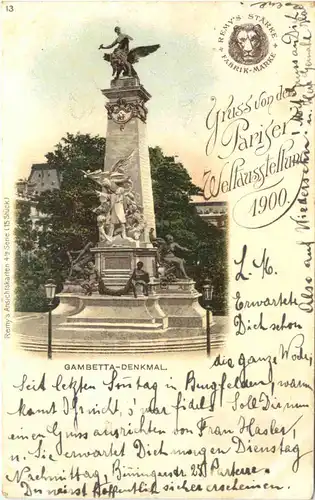 13
REMY'S STÄRKE
FABRIK-MARKE
Gruss von der
Pariser
Weltausstellung
1900.
Remy's Ansichtskarten 4te Serie (15 Stück)
GAMBETTA-DENKMAL.
L. K.
Erwartete
Dich schon
die ganze Woche
Seit letzten Sonntag in Burgfelden, warum
komst Du nicht, s'war fidel! Soll Dir nur
einen Gruss ausrichten von Frau Hasler,
u. Sie erwartet Dich morgen Dienstag
Nachmittag, Büningerstr 25 Parterre.
Du wirst hoffentlich sicher erscheinen.
Also auf Wiedersehn